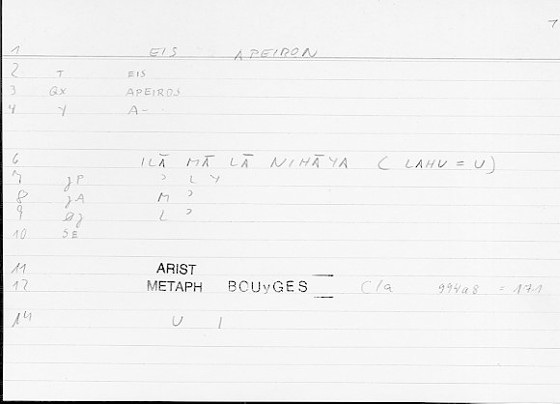 1
1 EIS APEIRON
2 T EIS
3 QX APEIROS
4 Y A-
6 ILĀ MĀ LĀ NIHĀYA ( LAHU = U)
7 JP ʾ L Y
8 JA M ʾ
9 L ʾ
10 SE
11 ARIST
12 METAPH BOUyGES C/a 994a8 = 171
14 U I